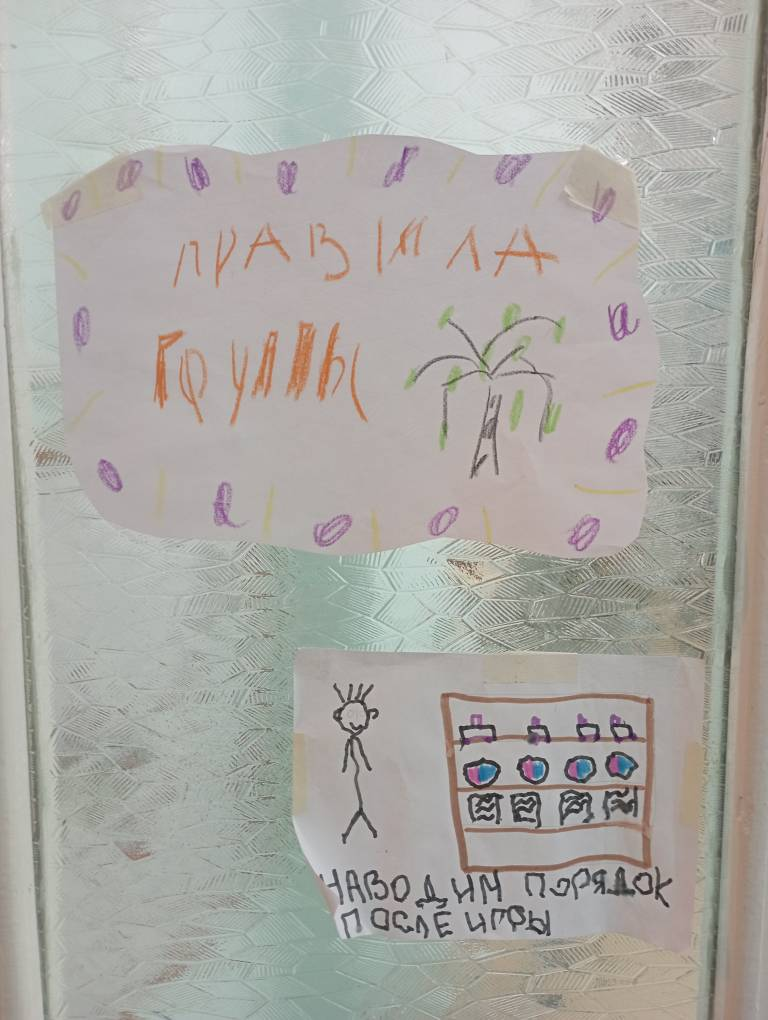 ПРАВИЛА
ГРУППЫ
НАВОДИМ ПОРЯДОК
ПОСЛЕ ИГРЫ